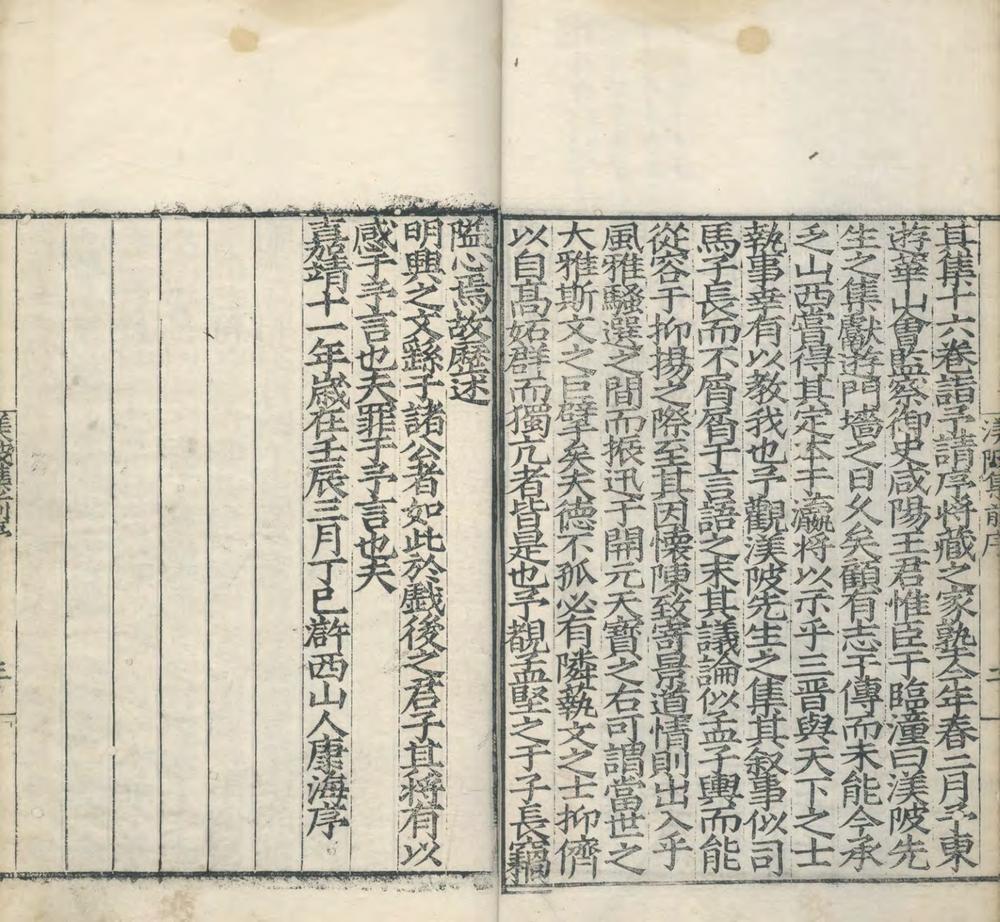 其集十六卷詣予請序將藏之家塾今年春二月予東
遊華山會監察御史咸陽王君惟臣于臨潼曰渼陂先
生之集獻遊門墻之日久矣顧有志于傳而未能今承
乏山西當得其定本于瀛將以示乎三晉與天下之士
執事幸有以教我也予觀渼陂先生之集其叙事似司
馬子長而不屑屑于言語之末其議論似孟子輿而能
從容于抑揚之際至其因懷陳致寄景道情則出入乎
風雅騷選之間而振迅于開元天寳之右可謂當世之
大雅斯文之巨擘矣夫德不孤必有隣執文之士抑儕
以自髙妬群而獨亢者皆是也予覩孟堅之于子長竊
隘心焉故歷述
明興之文繇子諸公者如此於戲後之君子其將有以
感予言也夫罪予言也夫
嘉靖十一年歲在壬辰三月丁巳滸西山人康海序